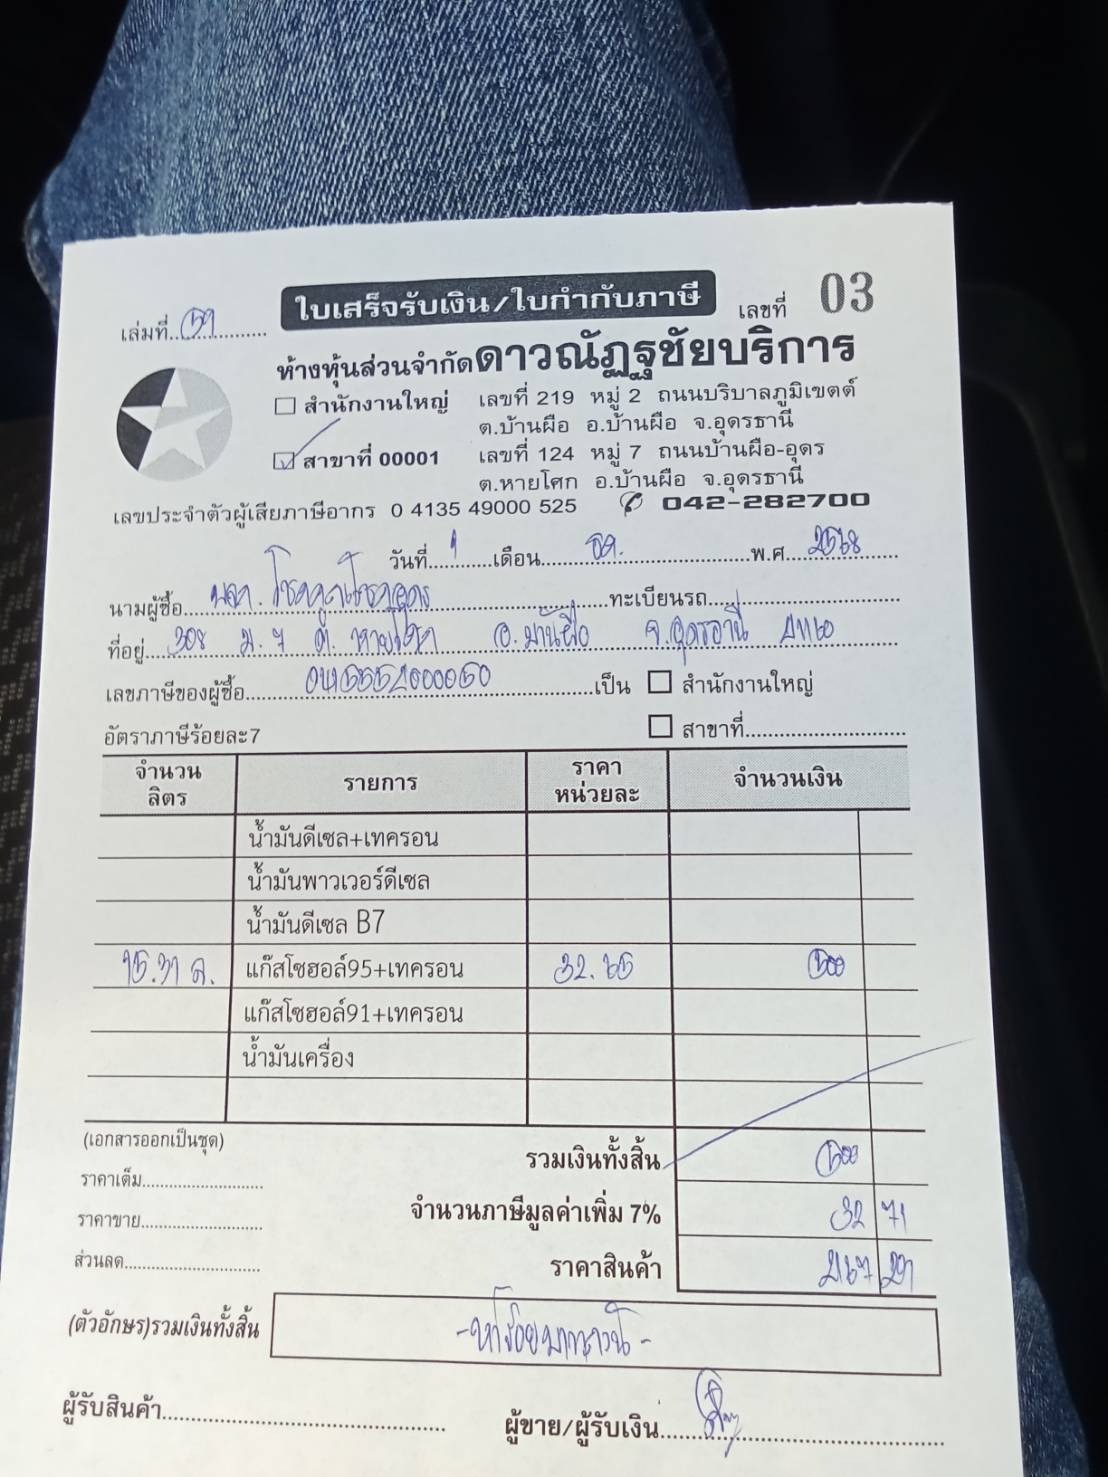 ใบเสร็จรับเงิน/ใบกำกับภาษี
เล่มที่ เลขที่ 03
ห้างหุ้นส่วนจำกัดดาวณัฏฐชัยบริการ
สำนักงานใหญ่ เลขที่ 219 หมู่ 2 ถนนบริบาลภูมิเขตต์
ต.บ้านผือ อ.บ้านผือ จ.อุดรธานี
สาขาที่ 00001 เลขที่ 124 หมู่ 7 ถนนบ้านผือ-อุดร
ต.หายโศก อ.บ้านผือ จ.อุดรธานี
เลขประจำตัวผู้เสียภาษีอากร 0 4135 49000 525 042-282700
วันที่ 1 เดือน พ.ศ. 2568
นามผู้ซื้อ ทะเบียนรถ
ที่อยู่ 308 ม.7 ต.หายโศก อ.บ้านผือ จ.อุดรธานี 41160
เลขภาษีของผู้ซื้อ เป็น สำนักงานใหญ่
อัตราภาษีร้อยละ7 สาขาที่
จำนวนลิตร รายการ ราคาหน่วยละ จำนวนเงิน
น้ำมันดีเซล+เทครอน
น้ำมันพาวเวอร์ดีเซล
น้ำมันดีเซล B7
15.31 ล. แก๊สโซฮอล์95+เทครอน 32.65 500
แก๊สโซฮอล์91+เทครอน
น้ำมันเครื่อง
(เอกสารออกเป็นชุด) รวมเงินทั้งสิ้น 500
ราคาเต็ม
จำนวนภาษีมูลค่าเพิ่ม 7% 32 71
ราคาขาย
ส่วนลด ราคาสินค้า 467 29
(ตัวอักษร)รวมเงินทั้งสิ้น -ห้าร้อยบาทถ้วน-
ผู้รับสินค้า ผู้ขาย/ผู้รับเงิน